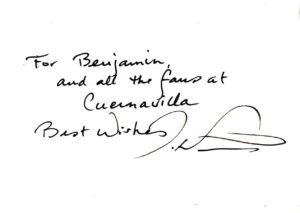 For Benjamin,
and all the fans at
Cuernavilla
Best Wishes